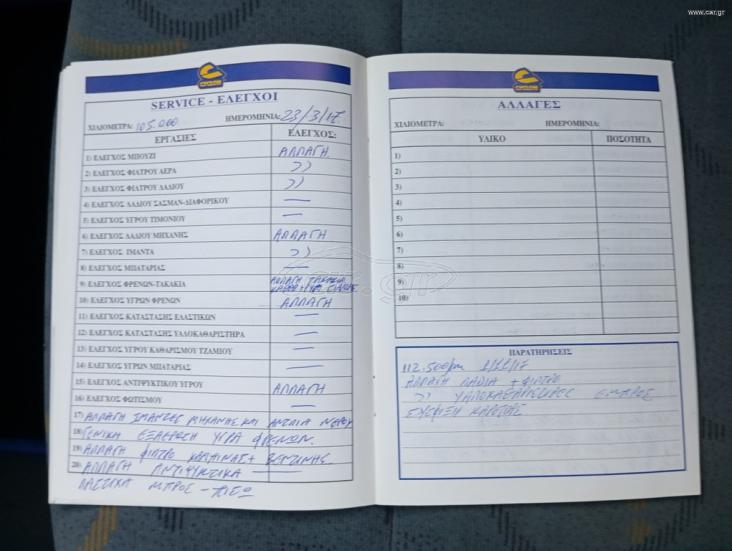 www.car.gr
SERVICE - ΕΛΕΓΧΟΙ
ΧΙΛΙΟΜΕΤΡΑ: 105.000 ΗΜΕΡΟΜΗΝΙΑ: 23/3/17
ΕΡΓΑΣΙΕΣ ΕΛΕΓΧΟΣ:
1) ΕΛΕΓΧΟΣ ΜΠΟΥΖΙ ΑΛΛΑΓΗ
2) ΕΛΕΓΧΟΣ ΦΙΛΤΡΟΥ ΑΕΡΑ ››
3) ΕΛΕΓΧΟΣ ΦΙΛΤΡΟΥ ΛΑΔΙΟΥ ››
4) ΕΛΕΓΧΟΣ ΛΑΔΙΟΥ ΣΑΣΜΑΝ-ΔΙΑΦΟΡΙΚΟΥ —
5) ΕΛΕΓΧΟΣ ΥΓΡΟΥ ΤΙΜΟΝΙΟΥ —
6) ΕΛΕΓΧΟΣ ΛΑΔΙΟΥ ΜΗΧΑΝΗΣ ΑΛΛΑΓΗ
7) ΕΛΕΓΧΟΣ ΙΜΑΝΤΑ ››
8) ΕΛΕΓΧΟΣ ΜΠΑΤΑΡΙΑΣ —
9) ΕΛΕΓΧΟΣ ΦΡΕΝΩΝ-ΤΑΚΑΚΙΑ ΑΛΛΑΓΗ ΤΑΚΑΚΙΑ
10) ΕΛΕΓΧΟΣ ΥΓΡΩΝ ΦΡΕΝΩΝ ΑΛΛΑΓΗ
11) ΕΛΕΓΧΟΣ ΚΑΤΑΣΤΑΣΗΣ ΕΛΑΣΤΙΚΩΝ —
12) ΕΛΕΓΧΟΣ ΚΑΤΑΣΤΑΣΗΣ ΥΑΛΟΚΑΘΑΡΙΣΤΗΡΑ —
13) ΕΛΕΓΧΟΣ ΥΓΡΟΥ ΚΑΘΑΡΙΣΜΟΥ ΤΖΑΜΙΟΥ —
14) ΕΛΕΓΧΟΣ ΥΓΡΩΝ ΜΠΑΤΑΡΙΑΣ —
15) ΕΛΕΓΧΟΣ ΑΝΤΙΨΥΚΤΙΚΟΥ ΥΓΡΟΥ ΑΛΛΑΓΗ
16) ΕΛΕΓΧΟΣ ΦΩΤΙΣΜΟΥ —
17) ΑΛΛΑΓΗ ΙΜΑΝΤΕΣ ΜΗΧΑΝΗΣ ΚΑΙ ΑΝΤΛΙΑ ΝΕΡΟΥ
18) ΓΕΝΙΚΗ ΕΞΑΕΡΩΣΗ ΥΓΡΑ ΦΡΕΝΩΝ.
19) ΑΛΛΑΓΗ ΦΙΛΤΡΟ ΚΑΜΠΙΝΑΣ + ΒΕΝΖΙΝΗΣ
20) ΑΛΛΑΓΗ ΑΝΤΙΨΥΚΤΙΚΑ —
ΛΑΣΤΙΧΑ ΜΠΡΟΣ - ΠΙΣΩ
ΑΛΛΑΓΕΣ
ΧΙΛΙΟΜΕΤΡΑ: ΗΜΕΡΟΜΗΝΙΑ:
ΥΛΙΚΟ ΠΟΣΟΤΗΤΑ
1)
2)
3)
4)
5)
6)
7)
8)
9)
10)
ΠΑΡΑΤΗΡΗΣΕΙΣ
112.500km
ΑΛΛΑΓΗ ΛΑΔΙΑ + ΦΙΛΤΡΟ
›› ΥΑΛΟΚΑΘΑΡΙΣΤΗΡΕΣ ΕΜΠΡΟΣ